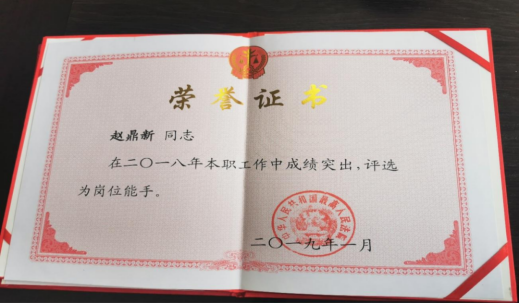 荣誉证书
赵鼎新 同志
在二〇一八年本职工作中成绩突出,评选
为岗位能手。
中华人民共和国最高人民法院
二〇一九年一月